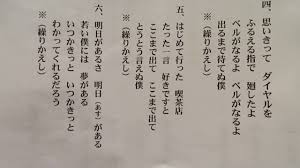 四、思いきって ダイヤルを
ふるえる指で 廻したよ
ベルがなるよ ベルがなるよ
出るまで待てぬ僕
※（繰りかえし）
五、はじめて行った 喫茶店
たった一言 好きですと
ここまで出て ここまで出て
とうとう言えぬ僕
※（繰りかえし）
六、明日があるさ 明日（あす）がある
若い僕には 夢がある
いつかきっと いつかきっと
わかってくれるだろう
※（繰りかえし）